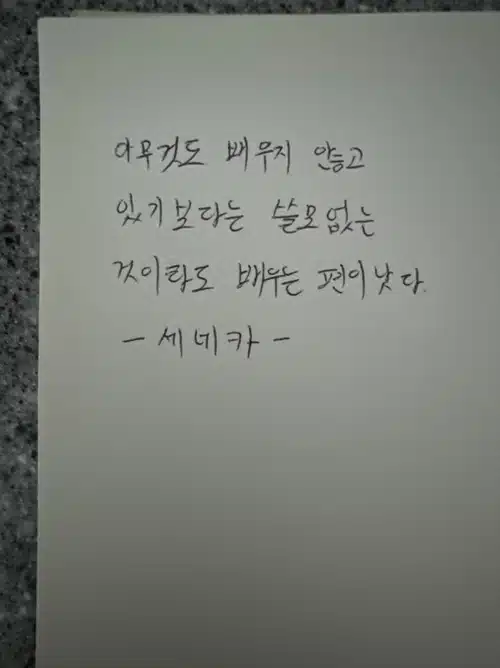 아무것도 배우지 않고
있기보다는 쓸모없는
것이라도 배우는 편이 낫다.
- 세네카 -